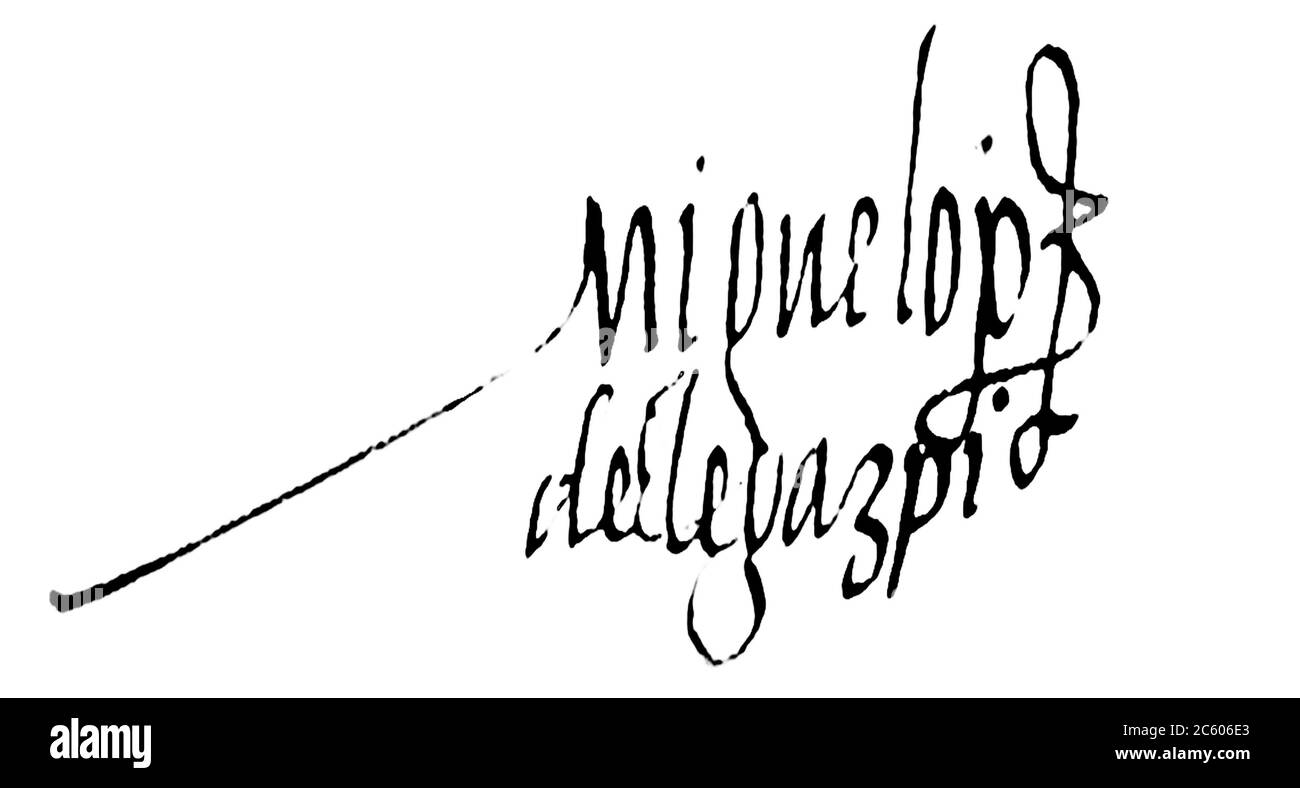 Miguel lopz
de legazpi
alamy
Image ID: 2C606E3
www.alamy.com